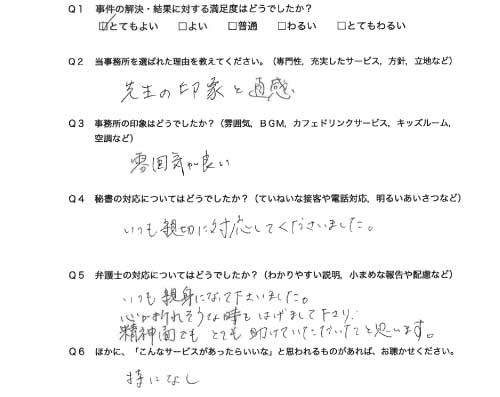 Q1 事件の解決・結果に対する満足度はどうでしたか？
☑とてもよい □よい □普通 □わるい □とてもわるい
Q2 当事務所を選ばれた理由を教えてください。（専門性，充実したサービス，方針，立地など）
先生の印象と直感
Q3 事務所の印象はどうでしたか？（雰囲気，BGM，カフェドリンクサービス，キッズルーム，
空調など）
雰囲気が良い
Q4 秘書の対応についてはどうでしたか？（ていねいな接客や電話対応，明るいあいさつなど）
いつも親切に対応してくださいました。
Q5 弁護士の対応についてはどうでしたか？（わかりやすい説明，小まめな報告や配慮など）
いつも親身になって下さいました。
心が折れそうな時もはげまして下さり，
精神面でもとても助けていただいたと思います。
Q6 ほかに、「こんなサービスがあったらいいな」と思われるものがあれば、お聴かせください。
特になし